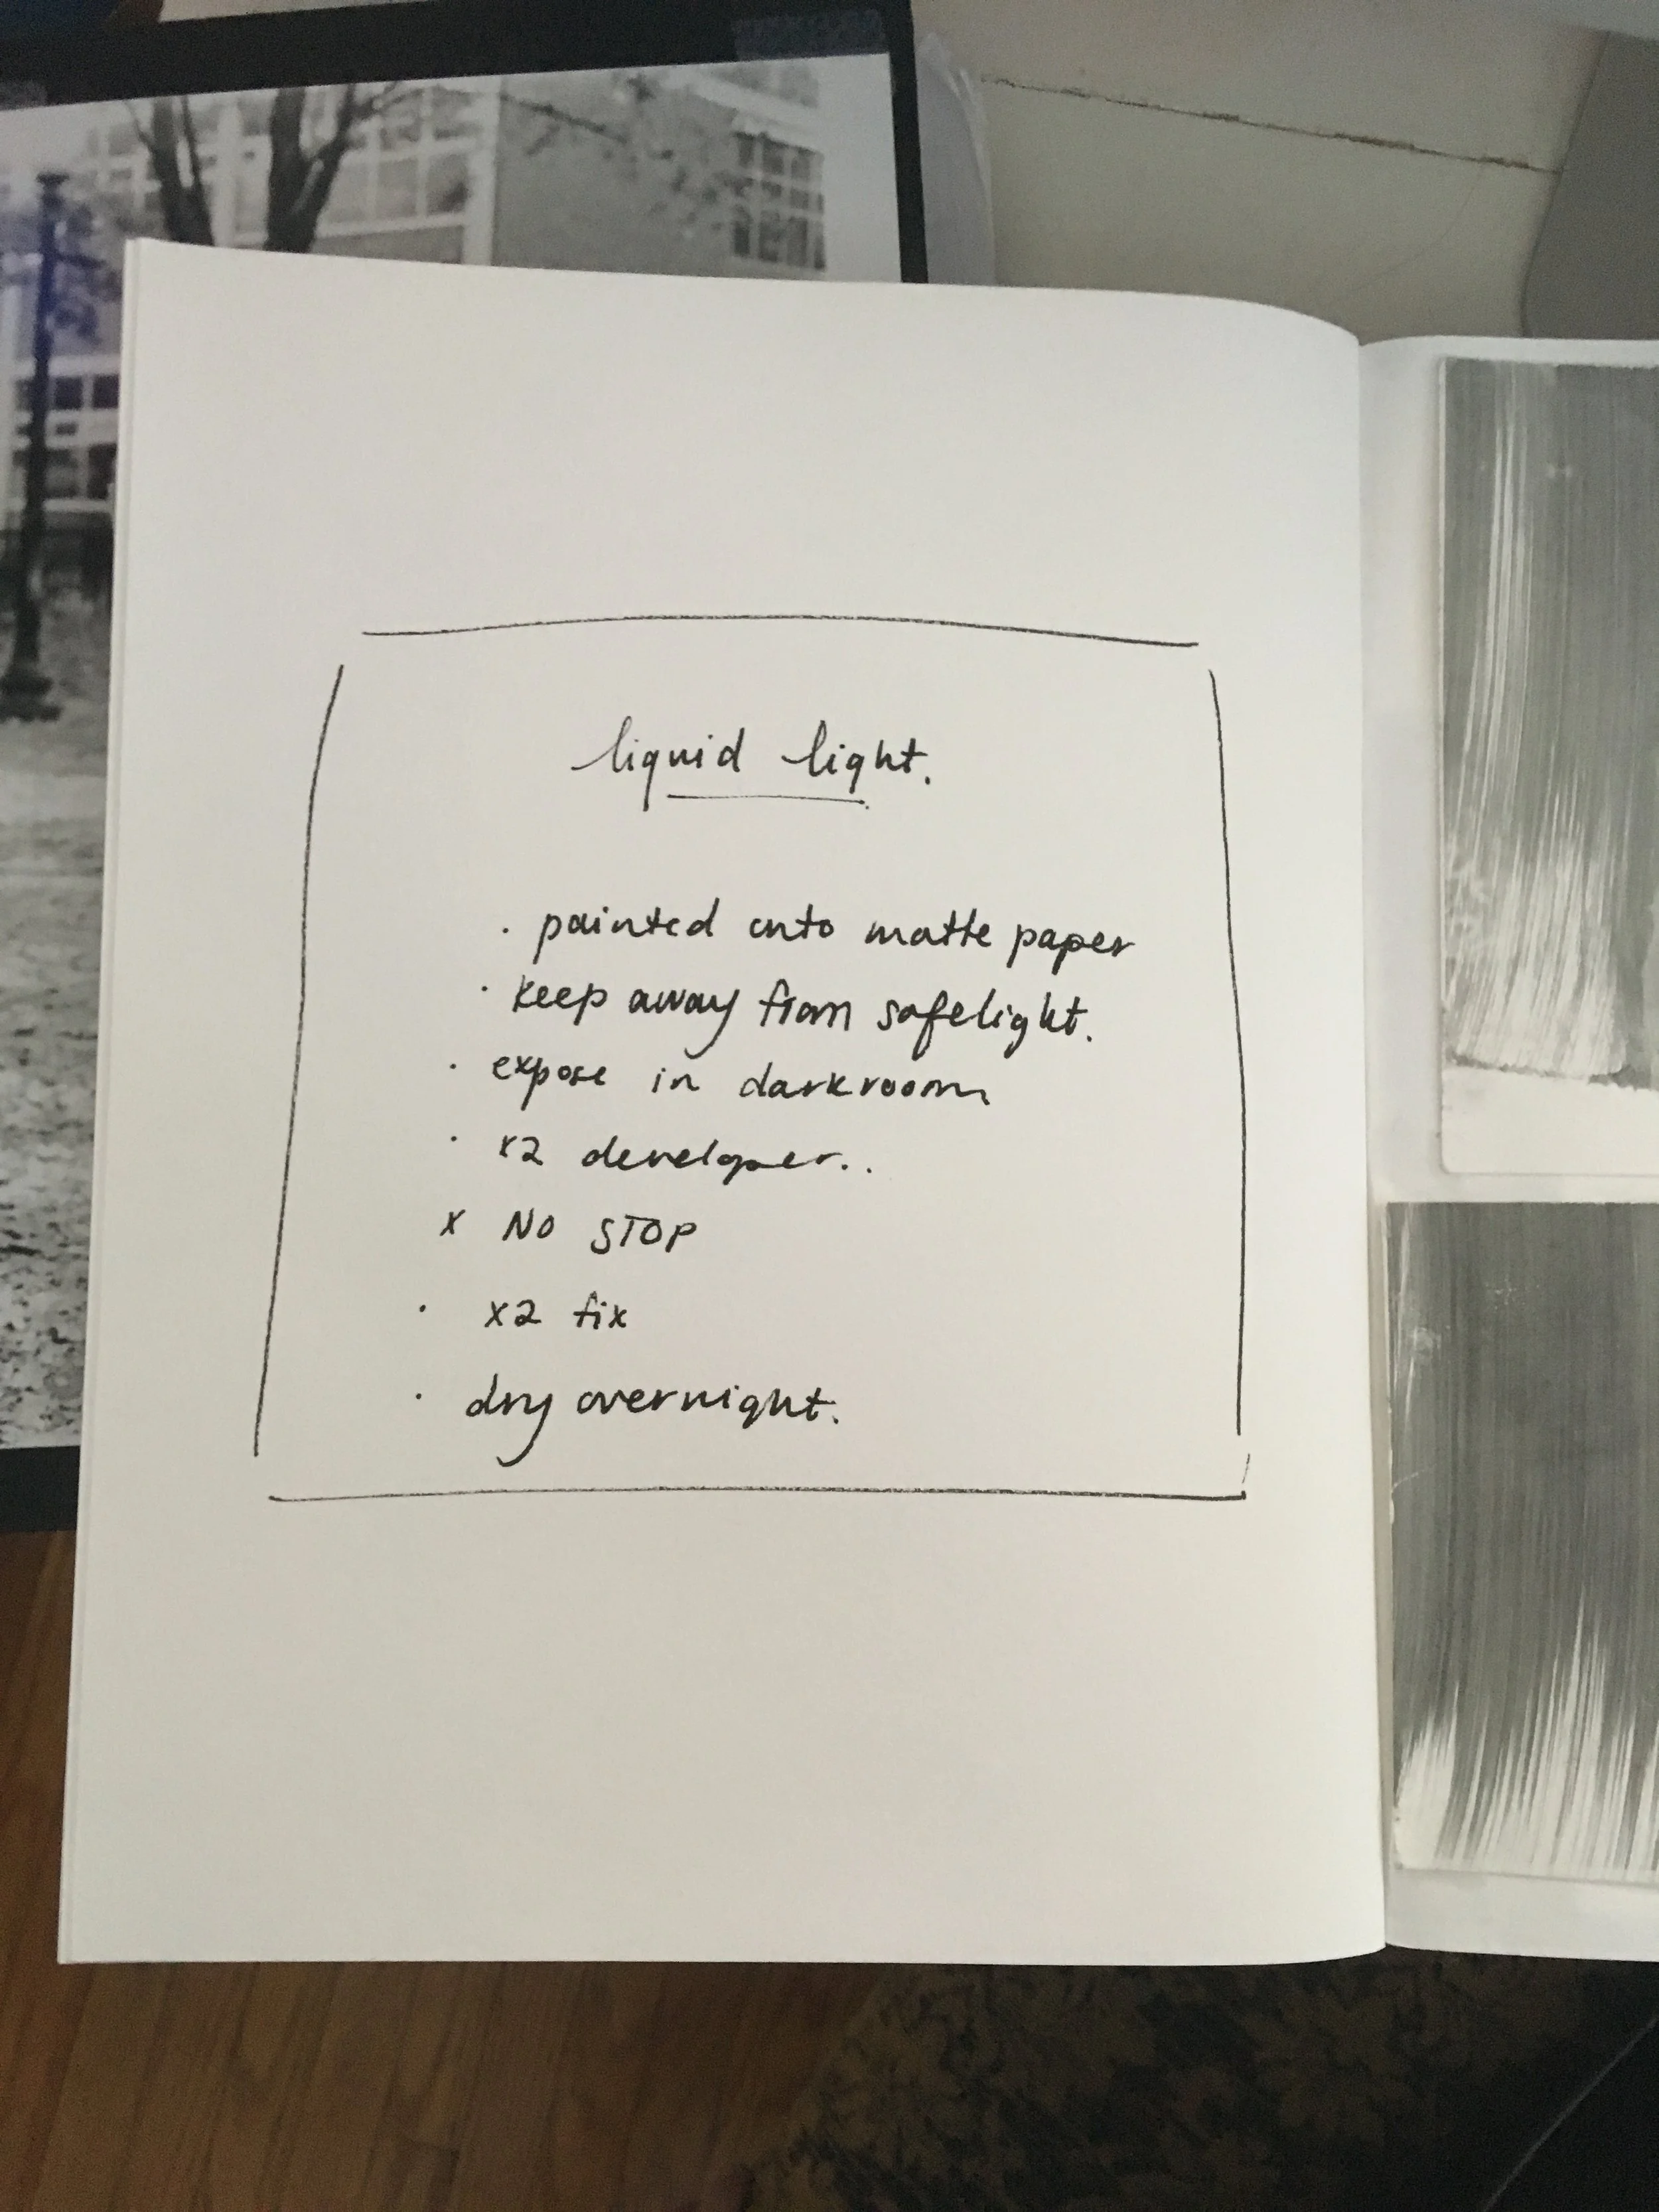 liquid light.
· painted onto matte paper
· keep away from safelight.
· expose in darkroom
· x2 developer..
x NO STOP
· x2 fix
· dry overnight.